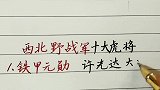 西北野战军十大虎将
1.铁甲元勋 许光达大